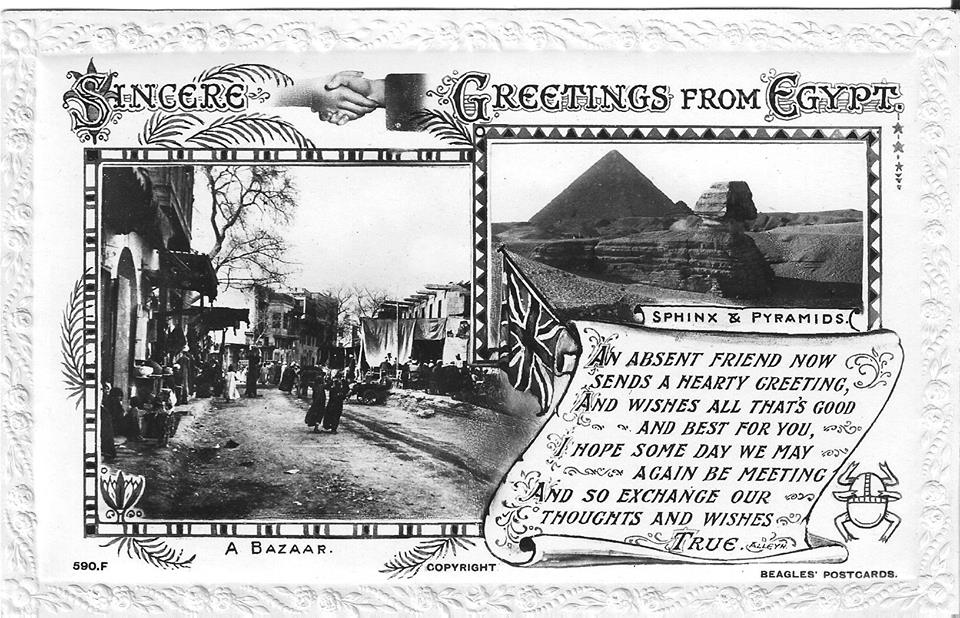 SINCERE GREETINGS FROM EGYPT.
SPHINX & PYRAMIDS.
AN ABSENT FRIEND NOW
SENDS A HEARTY GREETING,
AND WISHES ALL THAT'S GOOD
AND BEST FOR YOU,
I HOPE SOME DAY WE MAY
AGAIN BE MEETING
AND SO EXCHANGE OUR
THOUGHTS AND WISHES
TRUE. ALLEYN.
A BAZAAR.
590.F
COPYRIGHT
BEAGLES' POSTCARDS.